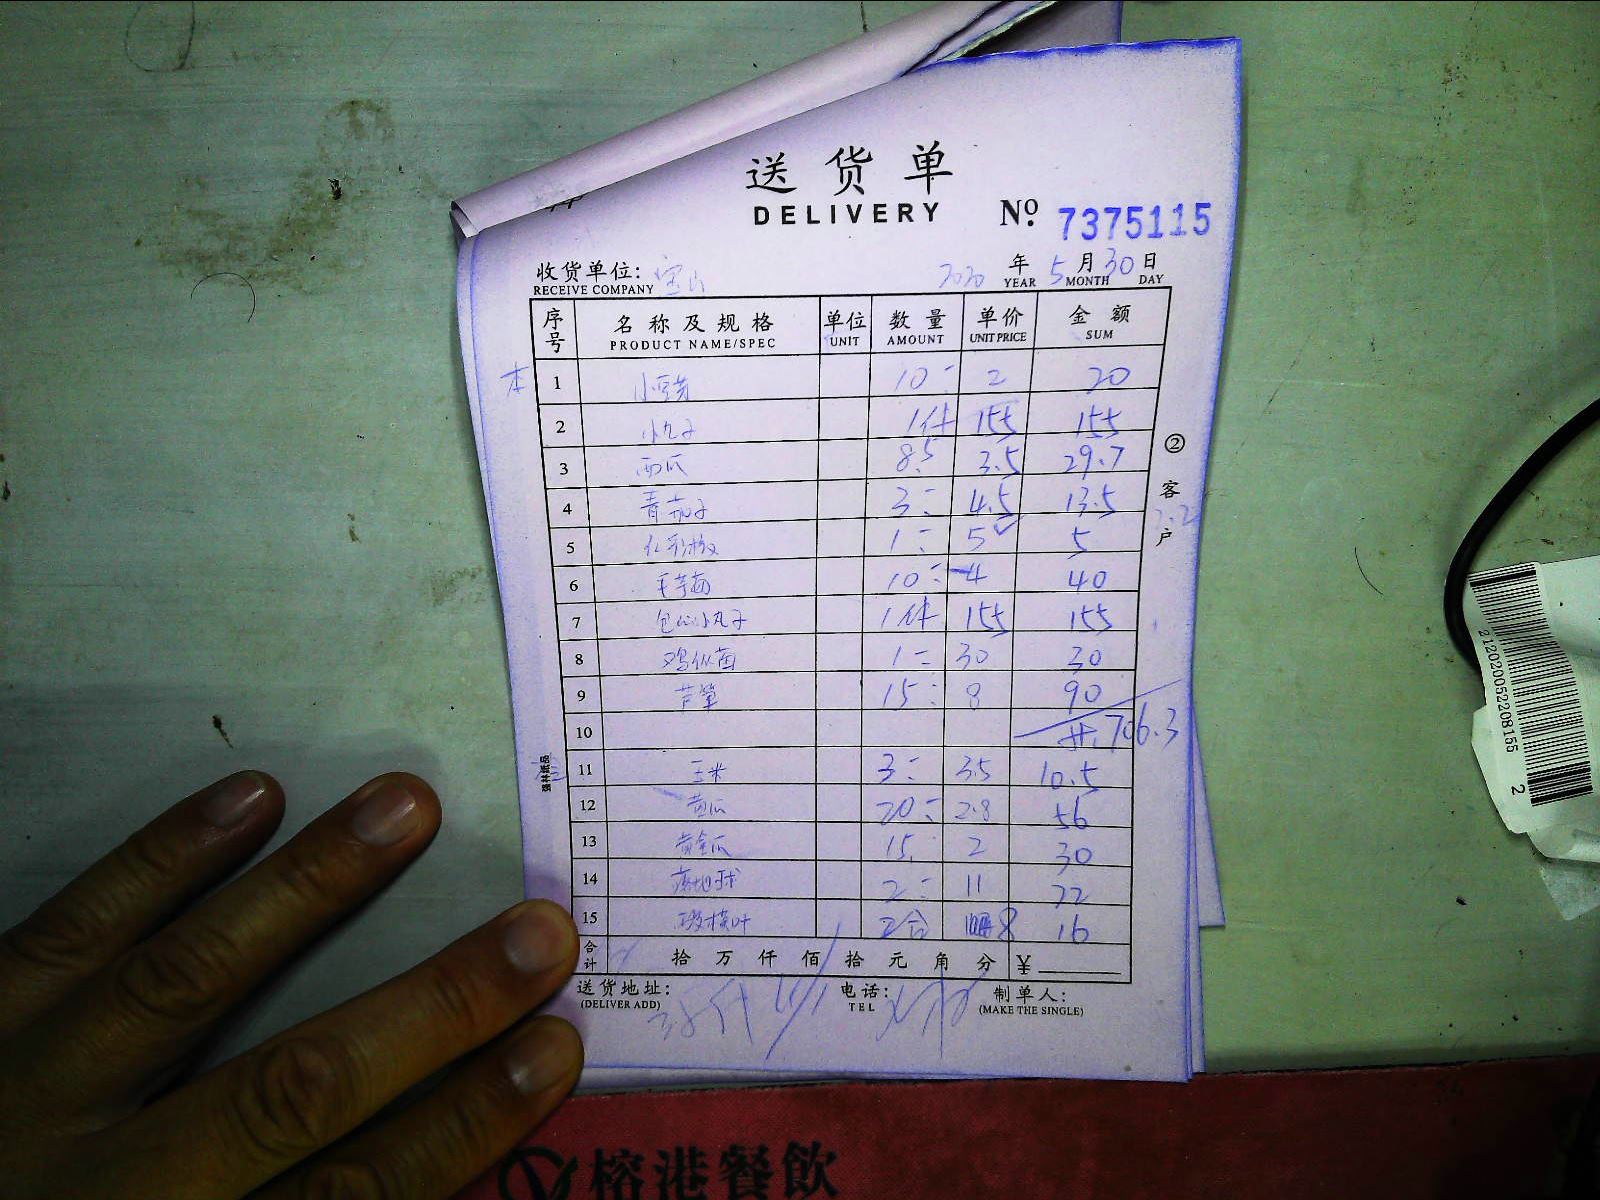 送货单
DELIVERY
№ 7375115
收货单位: 宝山 2020 年 5 月 30 日
RECEIVE COMPANY YEAR MONTH DAY
序号 名称及规格 单位 数量 单价 金额
PRODUCT NAME/SPEC UNIT AMOUNT UNIT PRICE SUM
本 1 小豆芽 10 2 20
2 小丸子 1件 155 155
3 西瓜 8.5 3.5 29.7
4 青茄子 3 4.5 13.5
5 红彩椒 1 5 5
6 毛芋艿 10 4 40
7 包心小丸子 1件 155 155
8 鸡枞菌 1 30 30
9 芦笋 15 8 90
10 共.706.3
11 玉米 3 3.5 10.5
12 黄瓜 20 2.8 56
13 黄金瓜 15 2 30
14 2 11 22
15 2合 8 16
合计 拾万仟佰拾元角分 ¥
送货地址: 电话: 制单人:
(DELIVER ADD) TEL (MAKE THE SINGLE)
② 客户
2120200522081552
榕港餐飲